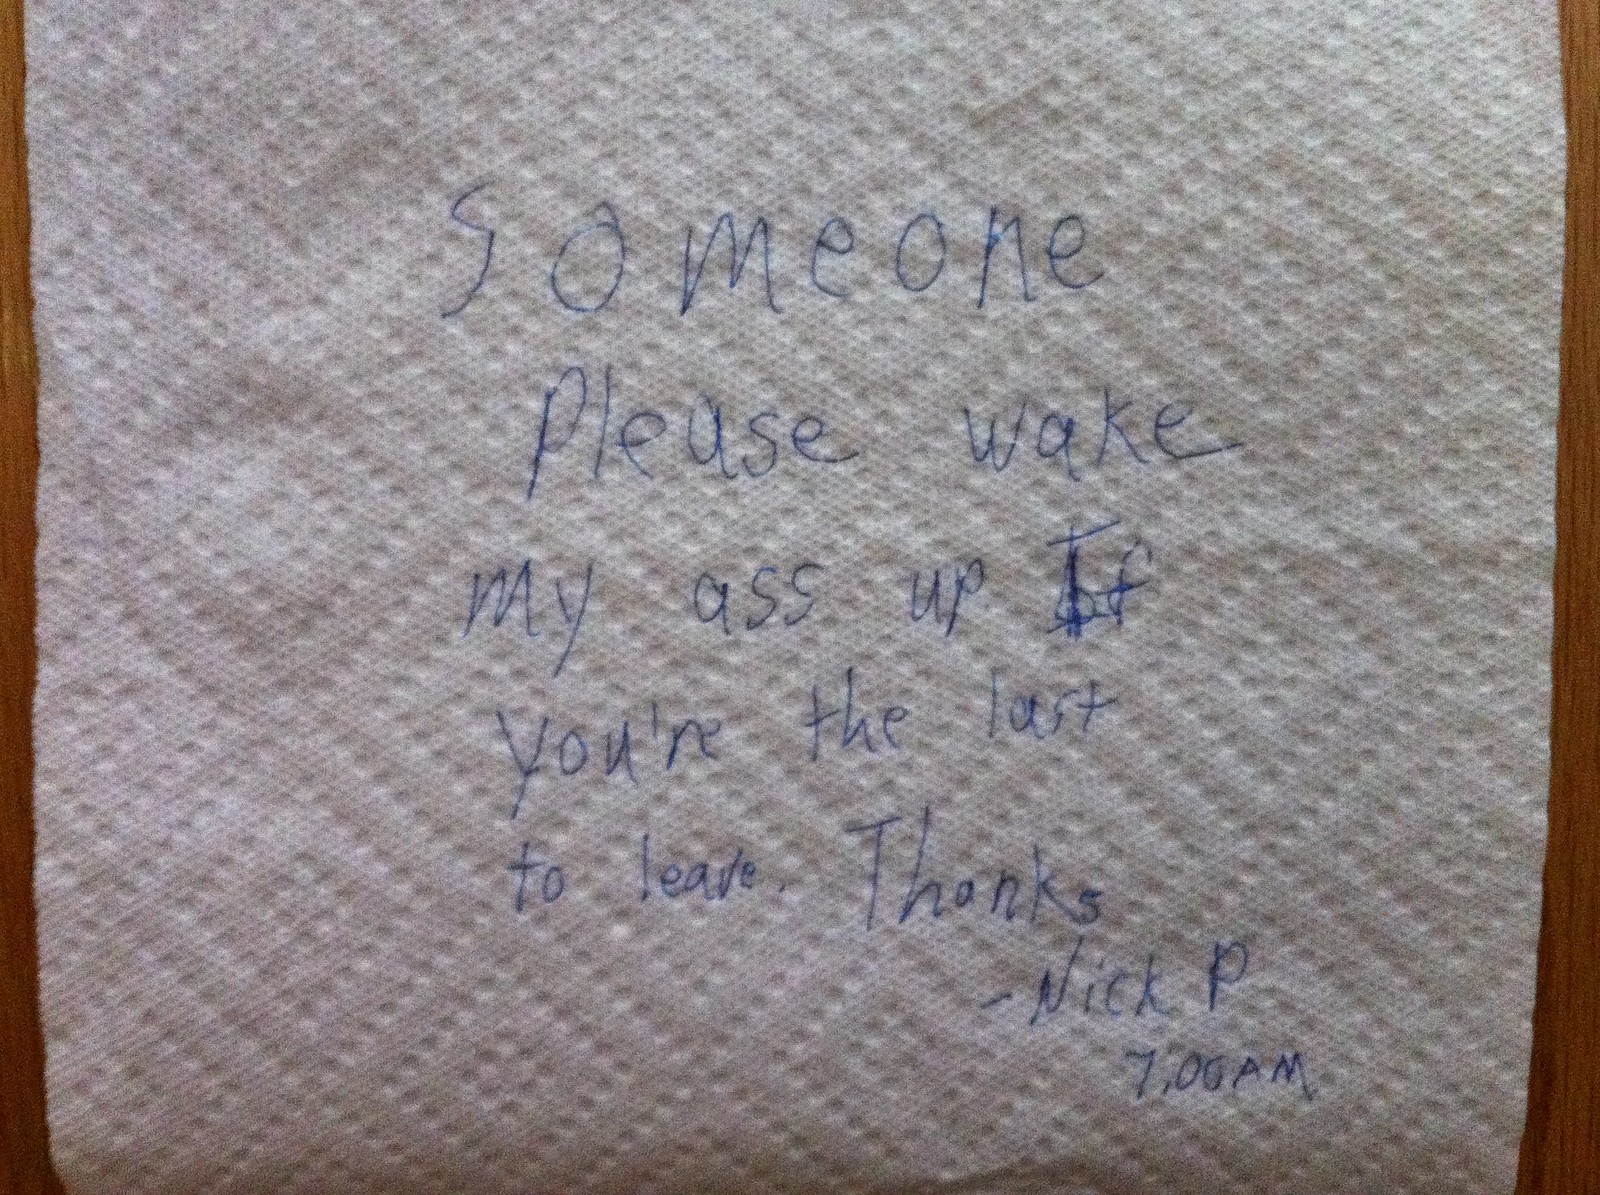 Someone
Please wake
my ass up If
you're the last
to leave. Thanks
-Nick P
7:00AM